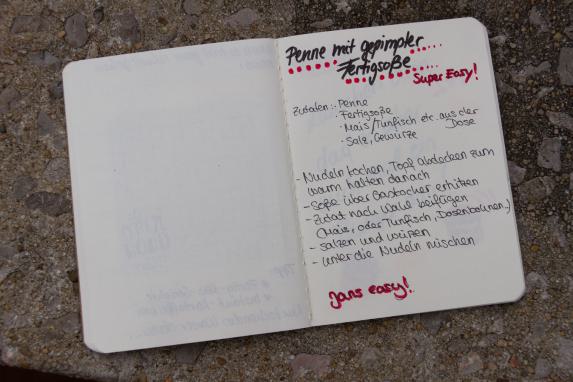 Penne mit gepimpter
Fertigsoße
Super Easy!
Zutaten: · Penne
· Fertigsoße
· Mais/Tunfisch etc. aus der
Dose
· Salz, Gewürze
- Nudeln kochen, Topf abdecken zum
warm halten danach
- Soße über Gaskocher erhitzen
- Zutat nach Wahl beifügen
(Mais, oder Tunfisch, Dosenbohnen..)
- salzen und würzen
- unter die Nudeln mischen
Gans easy!